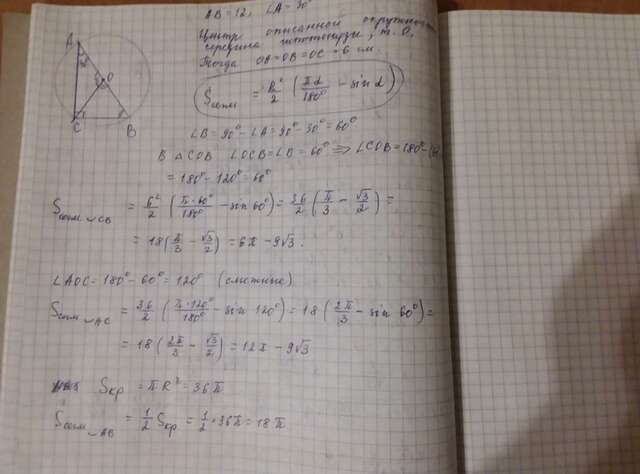 AB=12, ∠A=30°
Центр описанной окружности
середина гипотенузы, т. O,
Тогда OA=OB=OC=6 см.
Sсегм = R²/2 (πα/180° − sin α)
A
O
C
B
∠B = 90° − ∠A = 90° − 30° = 60°
В △COB ∠OCB = ∠B = 60° ⇒ ∠COB = 180° −
= 180° − 120° = 60°
Sсегм ◡CB = 6²/2 (π·60°/180° − sin 60°) = 36/2 (π/3 − √3/2) =
= 18 (π/3 − √3/2) = 6π − 9√3.
∠AOC = 180° − 60° = 120° (смежные)
Sсегм ◡AC = 36/2 (π·120°/180° − sin 120°) = 18 (2π/3 − sin 60°) =
= 18 (2π/3 − √3/2) = 12π − 9√3
Sкр = πR² = 36π
Sсегм ◡AB = 1/2 Sкр = 1/2 · 36π = 18π